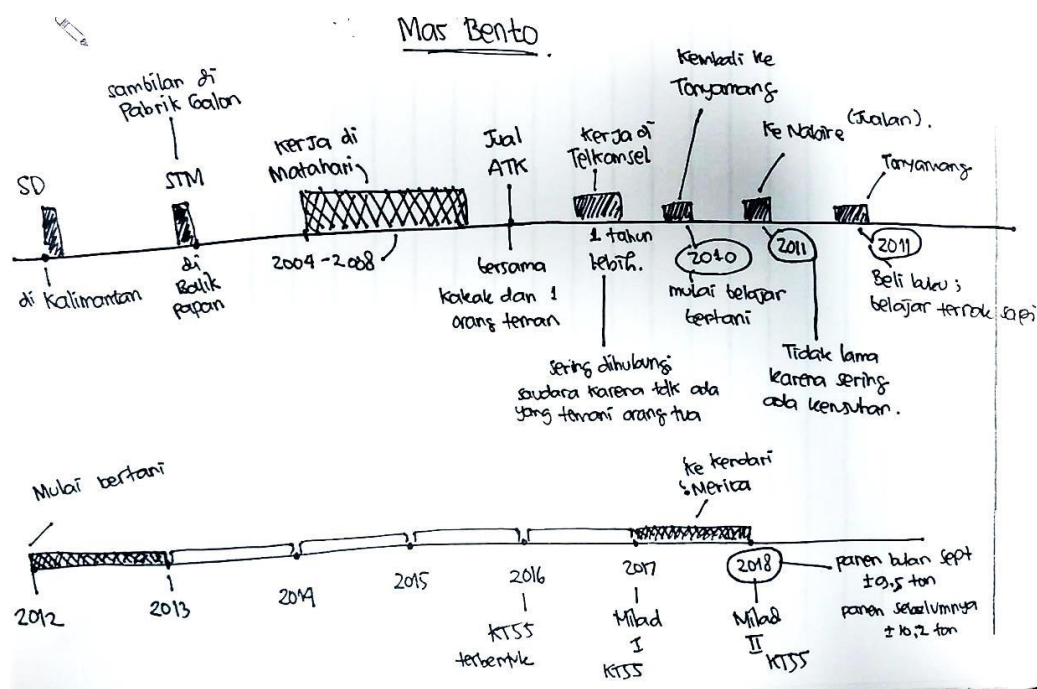 Mas Bento
sambilan di
Pabrik Galon
SD
STM
di Kalimantan
di
Balik
papan
Kerja di
Matahari
2004-2008
Jual
ATK
bersama
kakak dan 1
orang teman
Kerja di
Telkomsel
1 tahun
lebih.
sering dihubungi
saudara karena tdk ada
yang temani orang tua
Kembali ke
Tonyamang
2010
mulai belajar
bertani
Ke Nabire (Jualan).
2011
Tidak lama
karena sering
ada kerusuhan.
Tonyamang
2011
Beli buku;
belajar ternak sapi
Mulai bertani
2012
2013
2014
2015
2016
KT55
terbentuk
2017
Milad
I
KT55
ke Kendari
: Merica
2018
Milad
II
KT55
panen bulan sept
±9,5 ton
panen sebelumnya
±10,2 ton